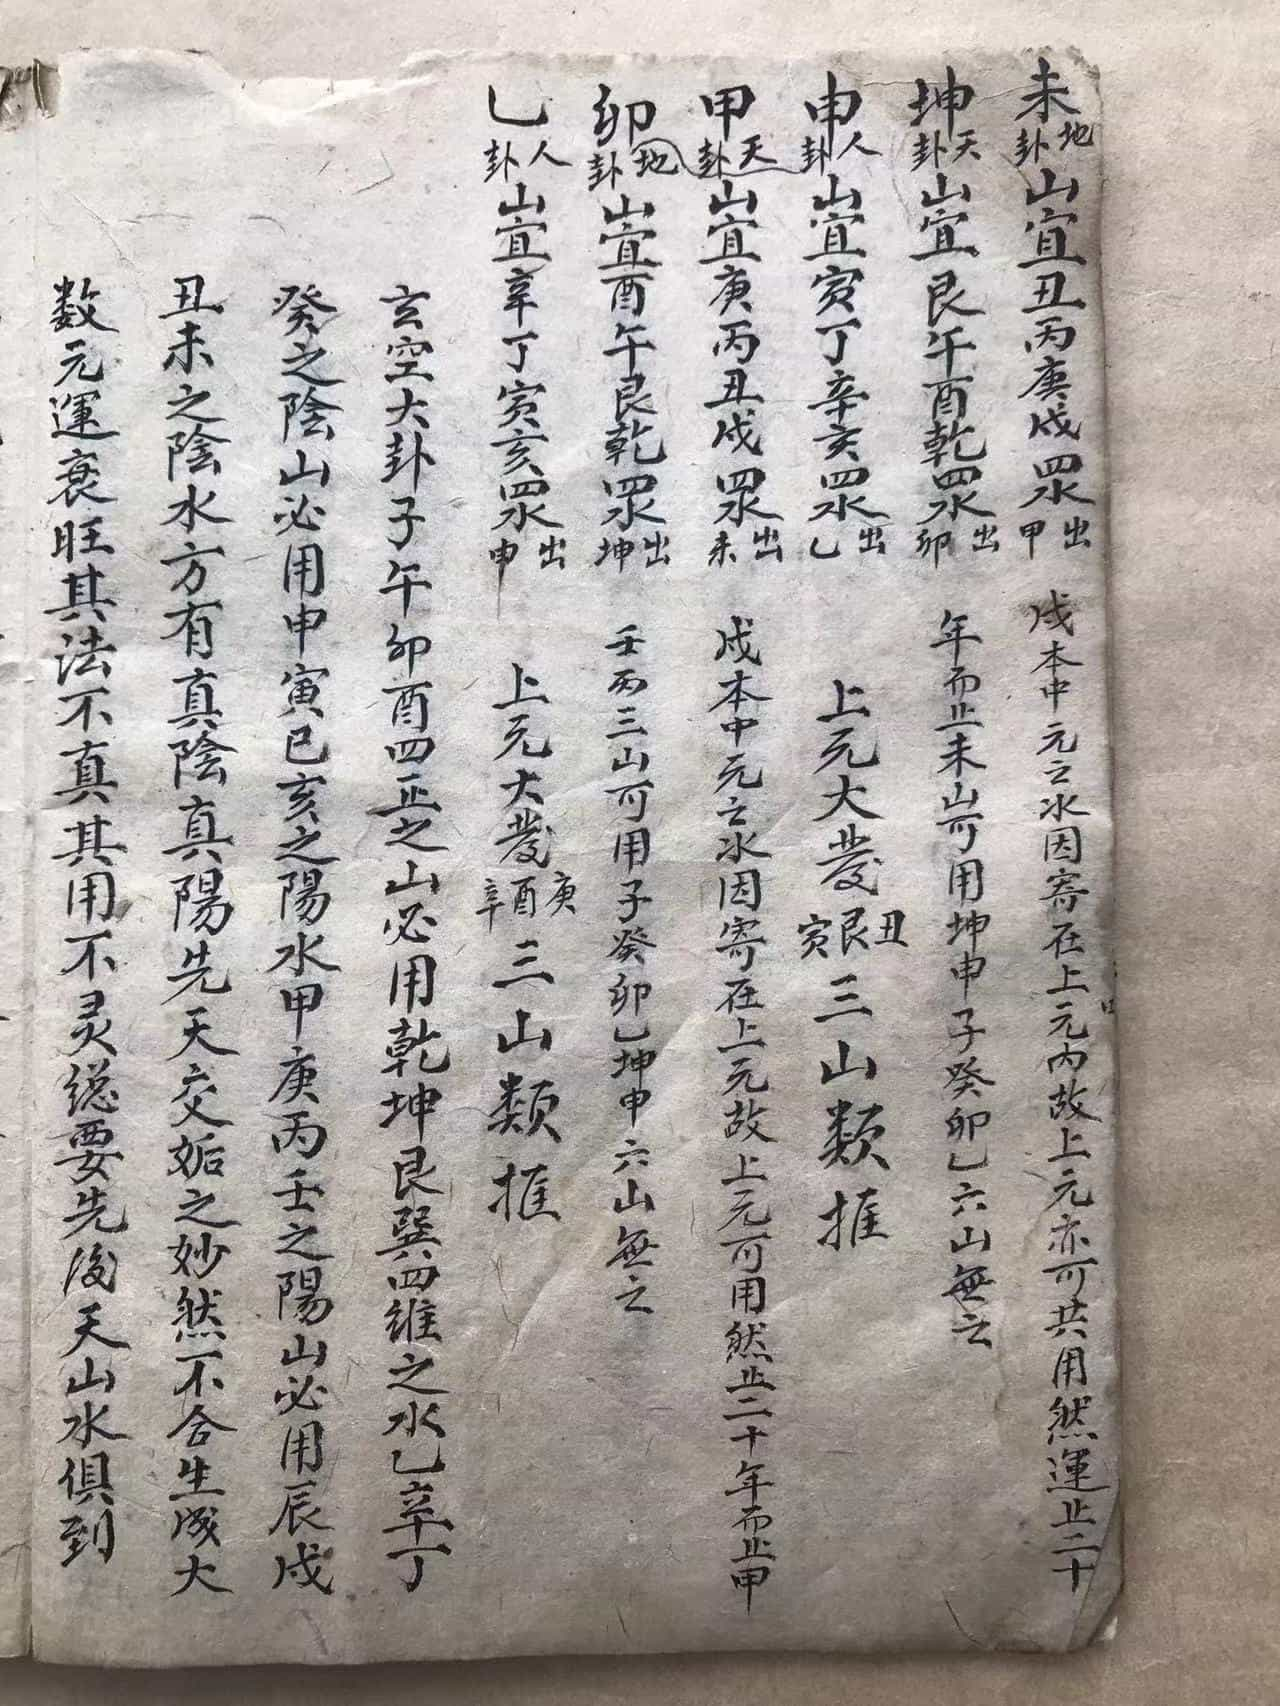 未地卦山宜丑丙庚戌四水出甲 戌本中元之水因寄在上元内故上元亦可共用然運止二十
坤天卦山宜艮午酉乾四水出卯 年而止未山可用坤申子癸卯乙六山無之
申人卦山宜寅丁辛亥四水出乙 上元大發丑艮寅三山類推
甲天卦山宜庚丙丑戌四水出未 戌本中元之水因寄在上元故上元可用然止二十年而止甲
卯地卦山宜酉午艮乾四水出坤 壬丙三山可用子癸卯乙坤申六山無之
乙人卦山宜辛丁寅亥四水出申 上元大發庚酉辛三山類推
玄空大卦子午卯酉四正之山必用乾坤艮巽四維之水乙辛丁
癸之陰山必用申寅巳亥之陽水甲庚丙壬之陽山必用辰戌
丑未之陰水方有真陰真陽先天交姤之妙然不合生成大
数元運衰旺其法不真其用不灵總要先後天山水俱到